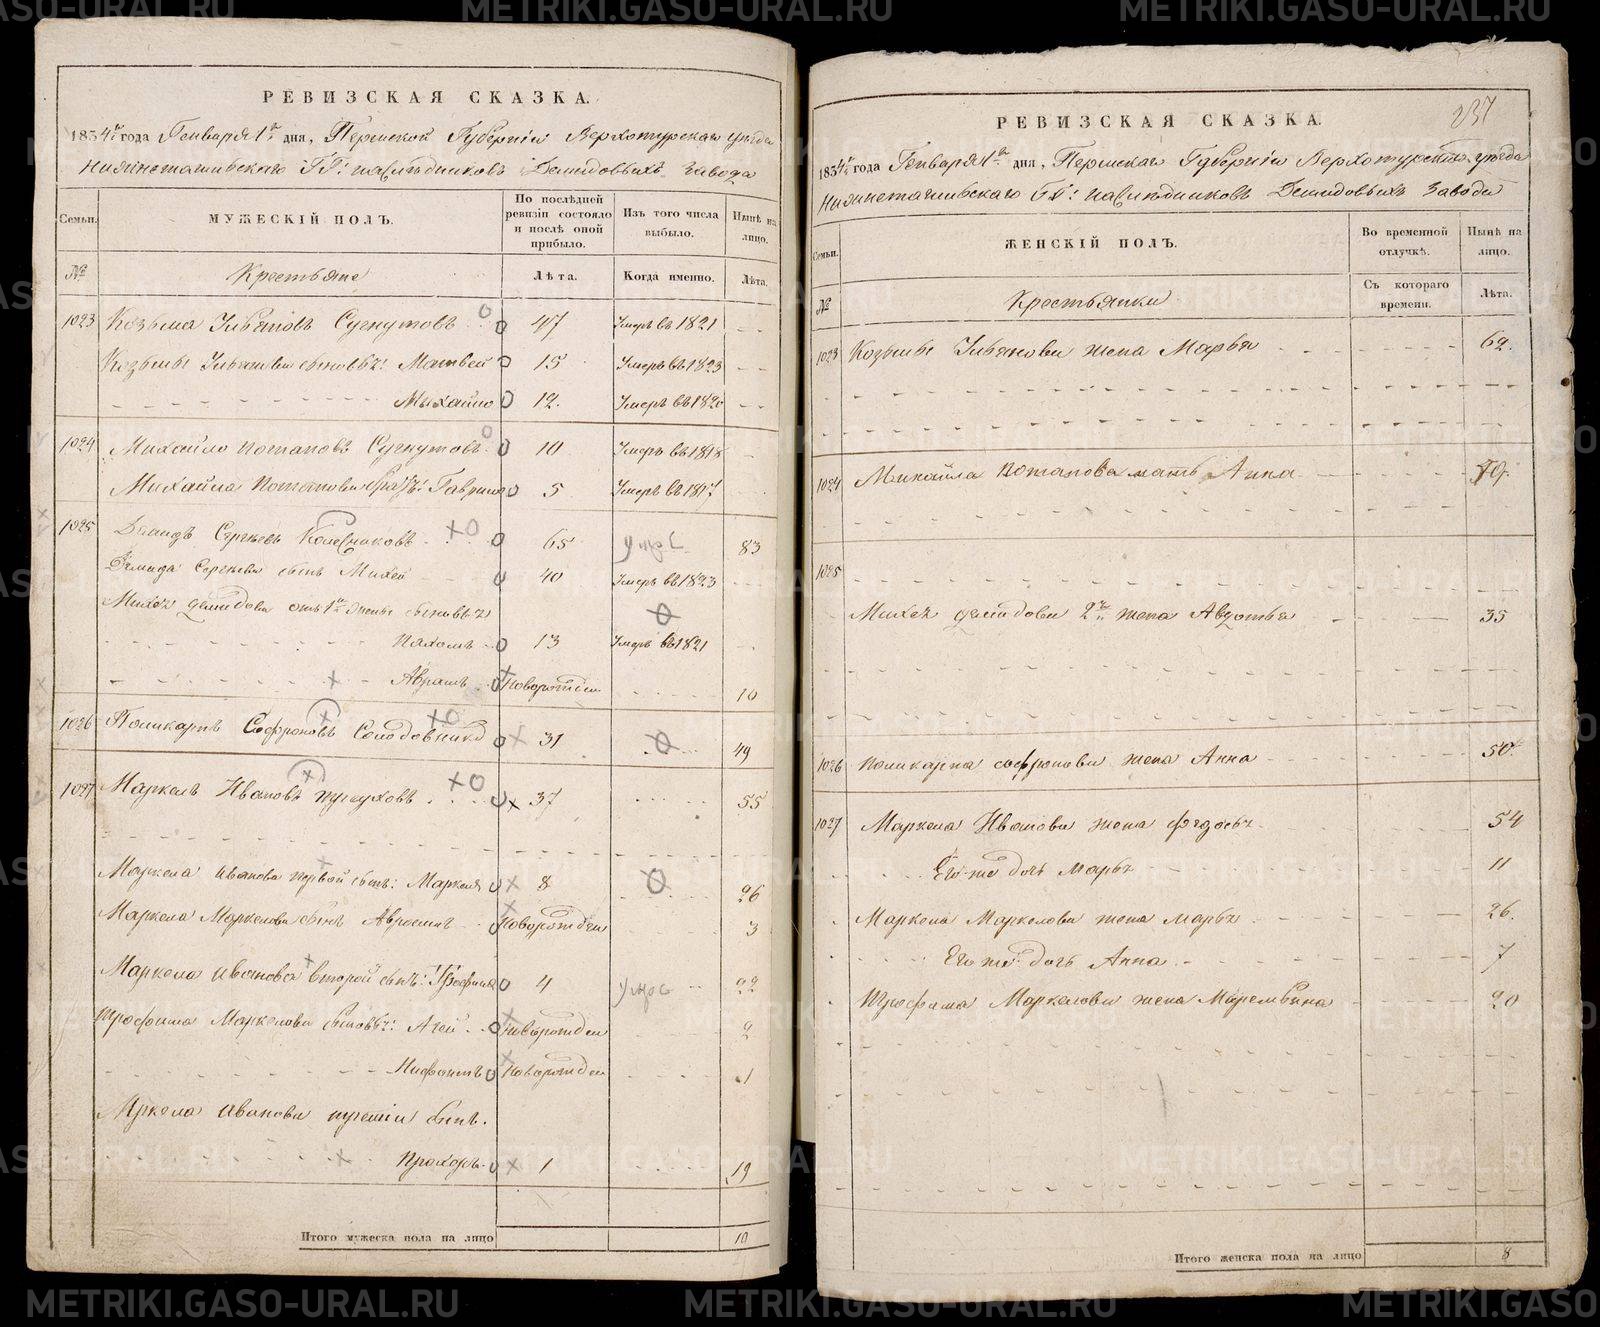 РЕВИЗСКАЯ СКАЗКА.
1834го года Генваря 1го дня, Пермской Губернии Верхотурскаго уезда
Нижнетагильскаго ГГ: наследниковъ Демидовыхъ Завода
Семьи.
МУЖЕСКІЙ ПОЛЪ.
По послѣдней ревизіи состояло и послѣ оной прибыло.
Изъ того числа выбыло.
Нынѣ на лицо.
№
Крестьяне
Лѣта.
Когда именно.
Лѣта.
1023 Козьма Ульяновъ Сугнутовъ 47 Умеръ въ 1821
Козьмы Ульянова сыновья: Матвей 15 Умеръ въ 1823
Михайло 12 Умеръ въ 1820
1024 Михайло Потаповъ Сугнутовъ 10 Умеръ въ 1818
Михайла Потапова братъ: Гаврило 5 Умеръ въ 1817
1025 Демидъ Сергеевъ Колесниковъ 65 умре 83
Демида Сергеева сынъ Михей 40 Умеръ въ 1823
Михея Демидова отъ 1й жены сыновья
Пахомъ 13 Умеръ въ 1821
Абрамъ Новорожден 10
1026 Поликарпъ Софроновъ Солодовников 31 49
1027 Маркелъ Ивановъ 37 55
Маркела Иванова первой сынъ: Маркелъ 8 26
Маркела Маркелова сынъ Новорожден 3
Маркела Иванова второй сынъ: Трофимъ 4 умре 22
Трофима Маркелова сыновья: Агей Новорожден 2
Нифонтъ Новорожден 1
Мркела Иванова третій сынъ.
Прохоръ 1 19
Итого мужеска пола на лицо 10
237
РЕВИЗСКАЯ СКАЗКА.
1834го года Генваря 1го дня, Пермскаго Губернии Верхотурскаго уезда
Нижнетагильскаго ГГ: наследниковъ Демидовыхъ Завода
Семьи.
ЖЕНСКІЙ ПОЛЪ.
Во временной отлучкѣ.
Нынѣ на лицо.
№
Крестьянки
Съ котораго времени.
Лѣта.
1023 Козьмы Ульянова жена Марья 62
1024 Михайла Потапова мать Анна
1025
Михея Демидова 2я жена Авдотья 35
1026 Поликарпа Софронова жена Анна 50
1027 Маркела Иванова жена Федосья 54
Его же дочь Марья 11
Маркела Маркелова жена Марья 26.
Его же дочь Анна 7
Трофима Маркелова жена Маремьяна 20
Итого женска пола на лицо 8
METRIKI.GASO-URAL.RU